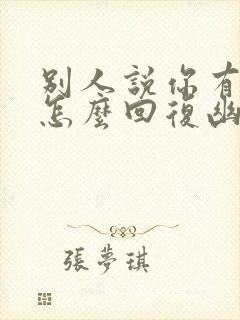 別人說你有
怎麼回復幽
張夢琪